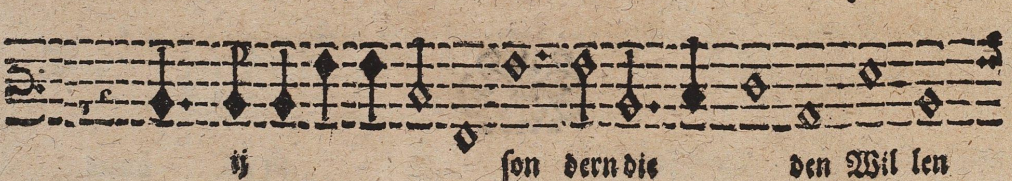 ij ſon dern die den Wil len